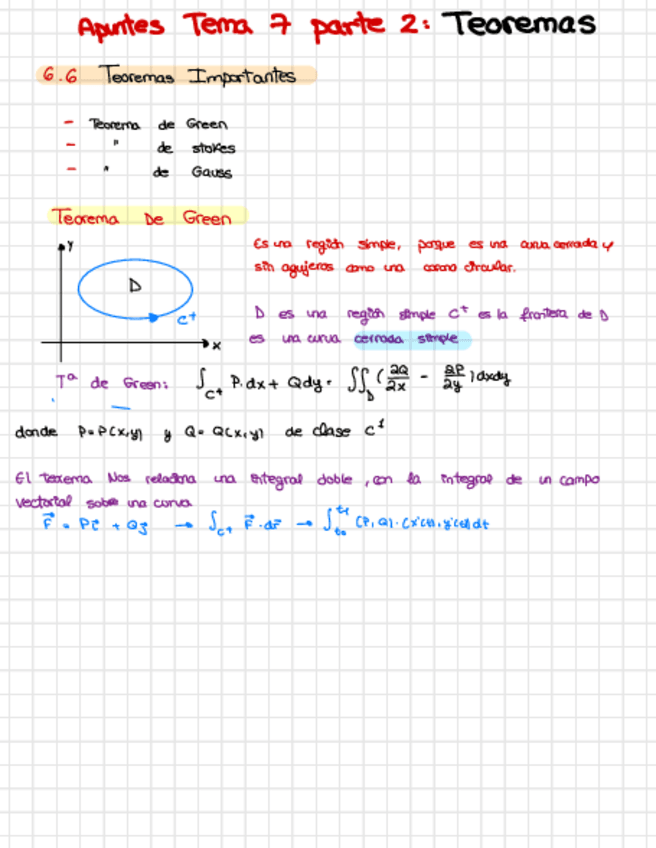 Apuntes Tema 7 parte 2: Teoremas
6.6 Teoremas Importantes
- Teorema de Green
- " de stokes
- " de Gauss
Teorema De Green
y
D
C+
x
Es una región simple, porque es una curva cerrada y
sin agujeros como una corona circular.
D es una región simple C⁺ es la frontera de D
es una curva cerrada simple
Tª de Green: ∫_C⁺ P·dx + Qdy = ∬_D (∂Q/∂x - ∂P/∂y) dxdy
donde P=P(x,y) y Q=Q(x,y) de clase C¹
El teorema Nos relaciona una integral doble, con la integral de un campo
vectorial sobre una curva
F⃗ = Pi⃗ + Qj⃗ → ∫_C⁺ F⃗·dr⃗ → ∫_t₀^t₁ (P,Q)·(x'(t), y'(t))dt